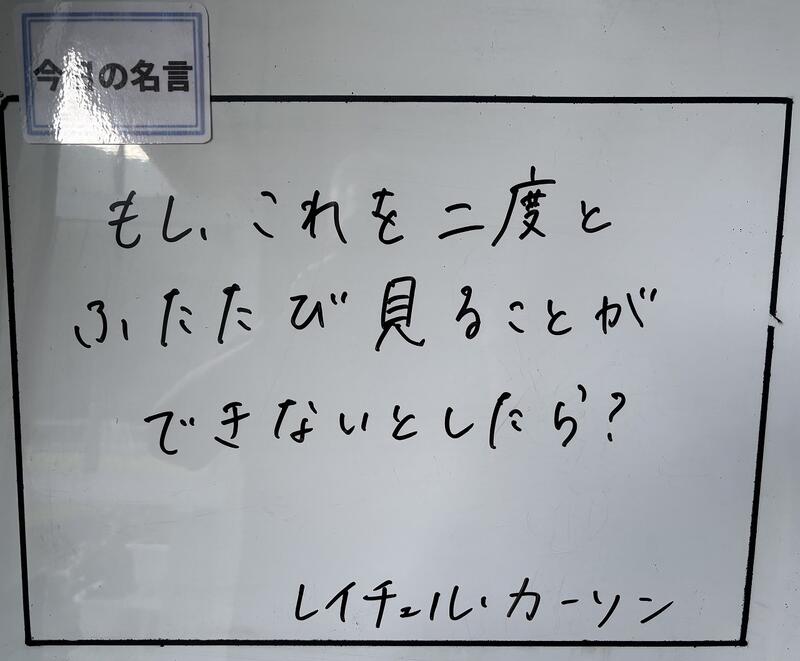 今日の名言
もし、これを二度と
ふたたび見ることが
できないとしたら?
レイチェル・カーソン